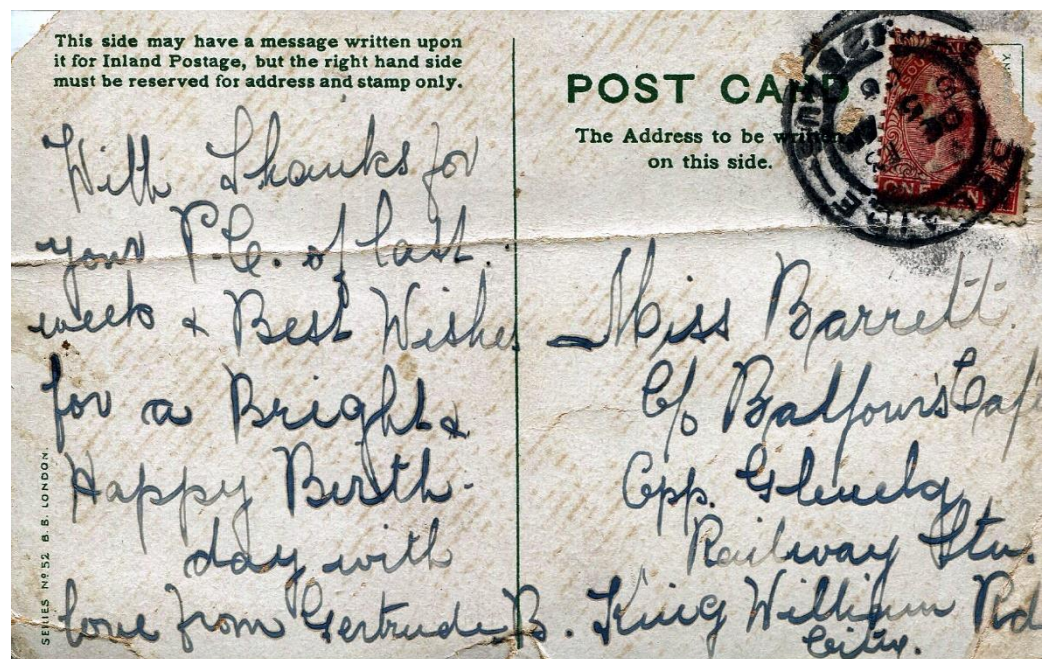 This side may have a message written upon
it for Inland Postage, but the right hand side
must be reserved for address and stamp only.
With Thanks for
your P.C. of last
week & Best Wishes
for a Bright &
Happy Birth-
day with
love from Gertrude B.
SERIES Nº 52 B.B. LONDON.
POST CARD
The Address to be written
on this side.
ONE PENNY
Miss Barrett.
C/o Balfour's Café
Opp. Glenelg
Railway Stn.
King William Rd
City.